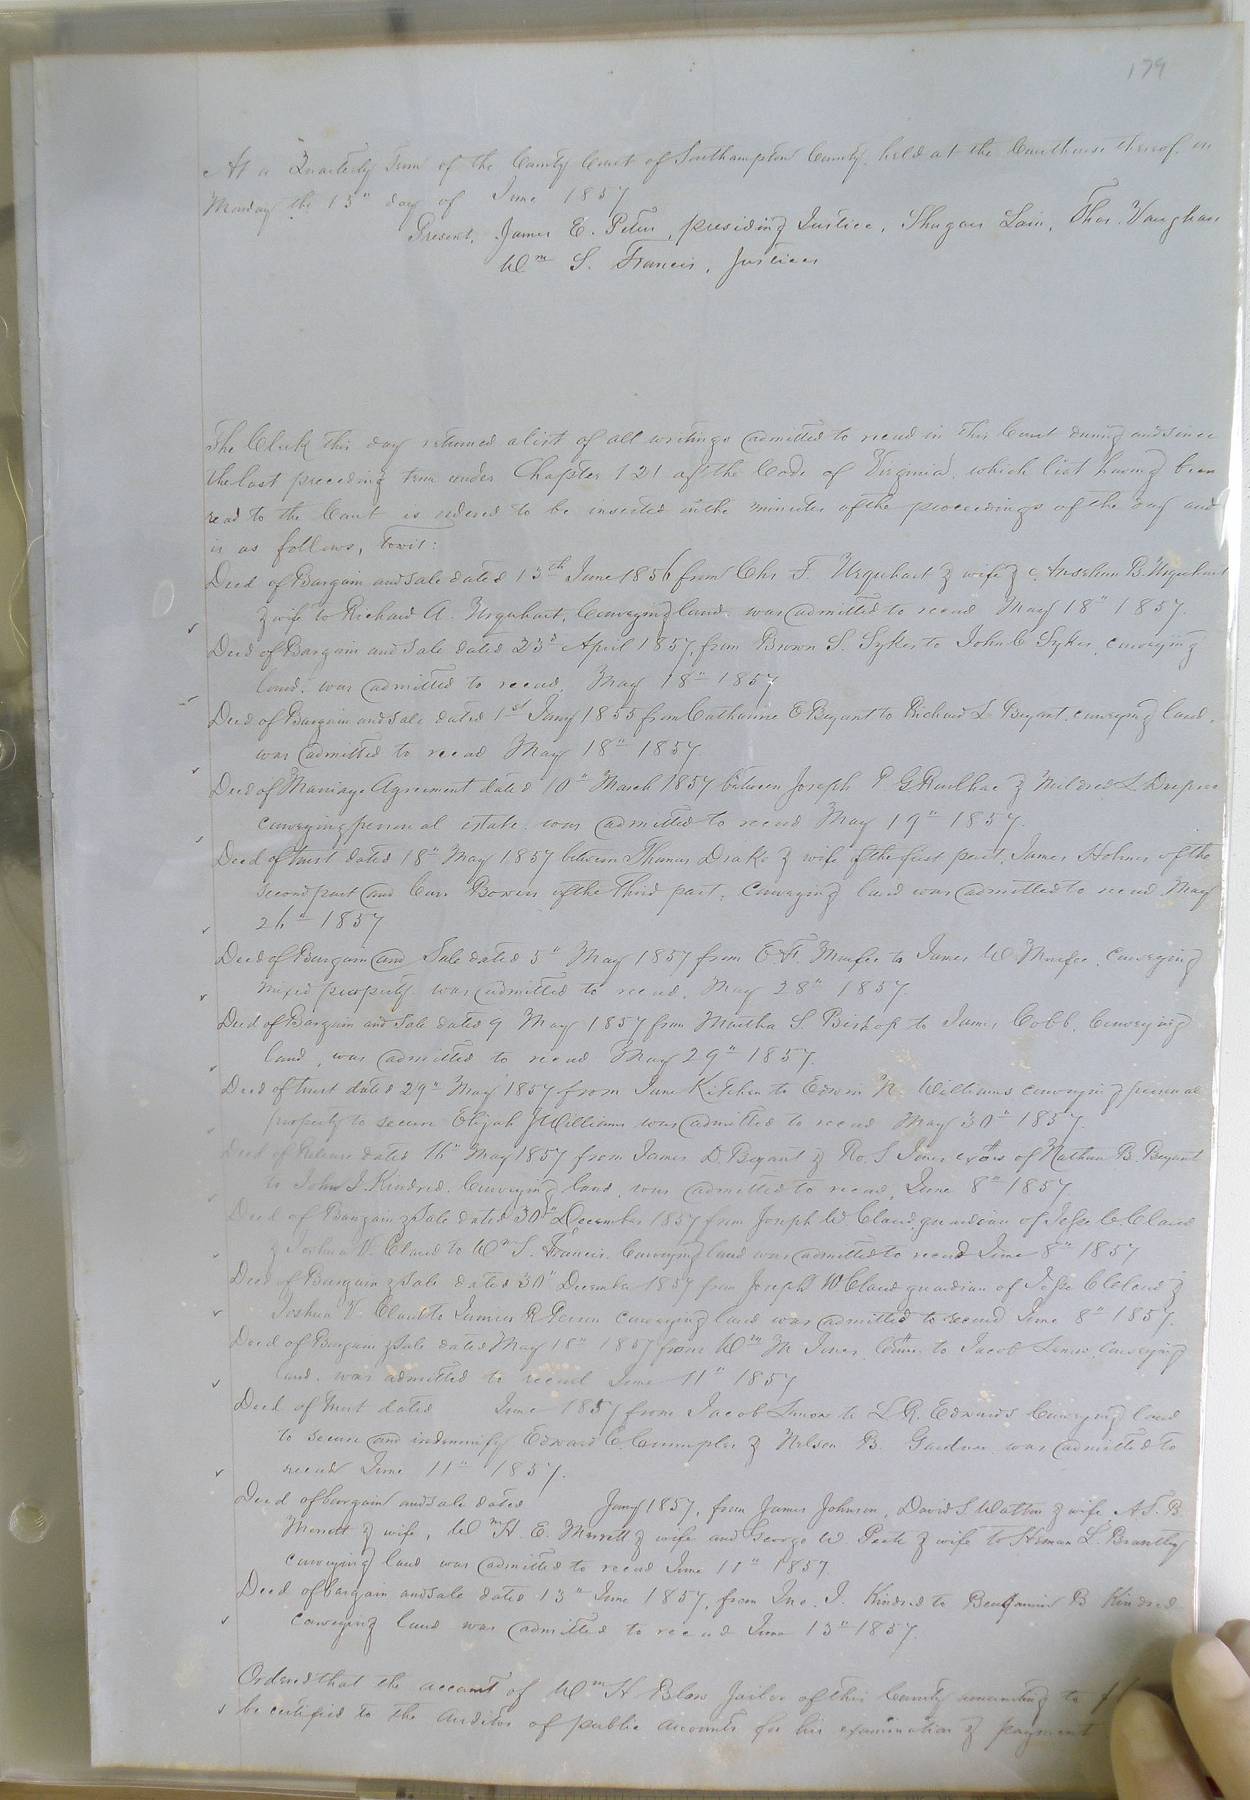 179
At a Quarterly Term of the County Court of Southampton County, held at the Courthouse thereof, on
Monday the 15" day of June 1857
Present, James E. Peter, presiding Justice, Shugars Lain, Thos. Vaughan
Wm S. Francis, Justices
The Clerk this day returned a list of all writings admitted to record in this Court during and since
the last preceding term under Chapter 121 of the Code of Virginia, which list having been
read to the Court is ordered to be inserted in the minutes of the proceedings of the day and
is as follows, towit:
Deed of Bargain and Sale dated 13th June 1856 from Chs F. Urquhart & wife & Anselem B. Urquhart
& wife to Richard A. Urquhart, Conveying land. was admitted to record May 18" 1857.
Deed of Bargain and Sale dated 23d April 1857, from Brown S. Sykes to John C Sykes, conveying
land. was admitted to record, May 18" 1857
Deed of Bargain and Sale dated 1st Jany 1855 from Catharine E Bryant to Richard L Bryant, conveying land,
was admitted to record May 18" 1857
Deed of Marriage Agreement dated 10" March 1857 between Joseph P. & Mildred L
conveying personal estate. was admitted to record May 19" 1857.
Deed of trust dated 18" May 1857 between Thomas Drake & wife of the first part, James Holmes of the
second part and Carr Bowers of the third part, conveying land was admitted to record May
26" 1857
Deed of Bargain and Sale dated 5" May 1857 from E F. Murfee to James W. Murfee, conveying
mixed property. was admitted to record, May 28" 1857
Deed of Bargain and Sale dated 9 May 1857 from Martha S. Bishop to James Cobb, Conveying
land, was admitted to record May 29" 1857.
Deed of trust dated 29" May 1857 from June Kitchen to Edwin N. Williams conveying personal
property to secure Elijah J Williams was admitted to record May 30" 1857.
Deed of Release dated 16" May 1857 from James D. Bryant & Ro. S Jones exors of Nathan B. Bryant
to John J. Kindred. Conveying land, was admitted to record, June 8" 1857
Deed of Bargain & Sale dated 30" December 1857 from Joseph W. Claud, guardian of Jesse C. Claud
& Joshua V. Claud to Wm S. Francis. Conveying land was admitted to record June 8" 1857
Deed of Bargain & Sale dated 30" December 1857 from Joseph W Claud guardian of Jesse C Claud &
Joshua V. Claud to Junius R. conveying land was admitted to record June 8" 1857.
Deed of Bargain & Sale dated May 18" 1857 from Wm M Jones, to Jacob conveying
land. was admitted to record June 11" 1857
Deed of trust dated June 1857 from Jacob to L. R. Edwards Conveying land
to secure and indemnify Edward C. Crumpler & Nelson B. Gardner was admitted to
record June 11" 1857.
Deed of bargain and sale dated Jany 1857, from James Johnson, David S Watton & wife A. S. B.
Merrett & wife, Wm H. E. Merrett & wife and George W. Peete & wife to Heman L. Brantley
conveying land was admitted to record June 11" 1857.
Deed of bargain and sale dated 13" June 1857, from Jno. J. Kindred to Benjamin B Kindred
conveying land was admitted to record June 13" 1857.
Ordered that the account of Wm H Blow Jailor of this County amounting to
be certified to the Auditor of public accounts for his examination & payment